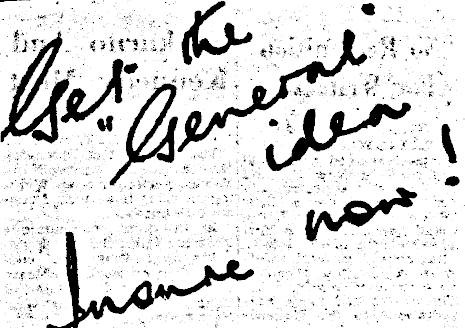 Get the
"General"
idea
now!
Insure